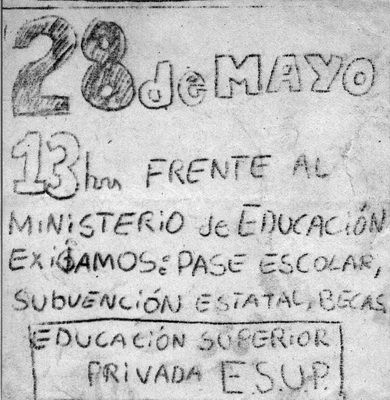 28 de MAYO
13 hrs FRENTE AL
MINISTERIO de EDUCACIÓN
EXIGAMOS: PASE ESCOLAR,
SUBVENCIÓN ESTATAL, BECAS
EDUCACIÓN SUPERIOR
PRIVADA E.S.U.P.